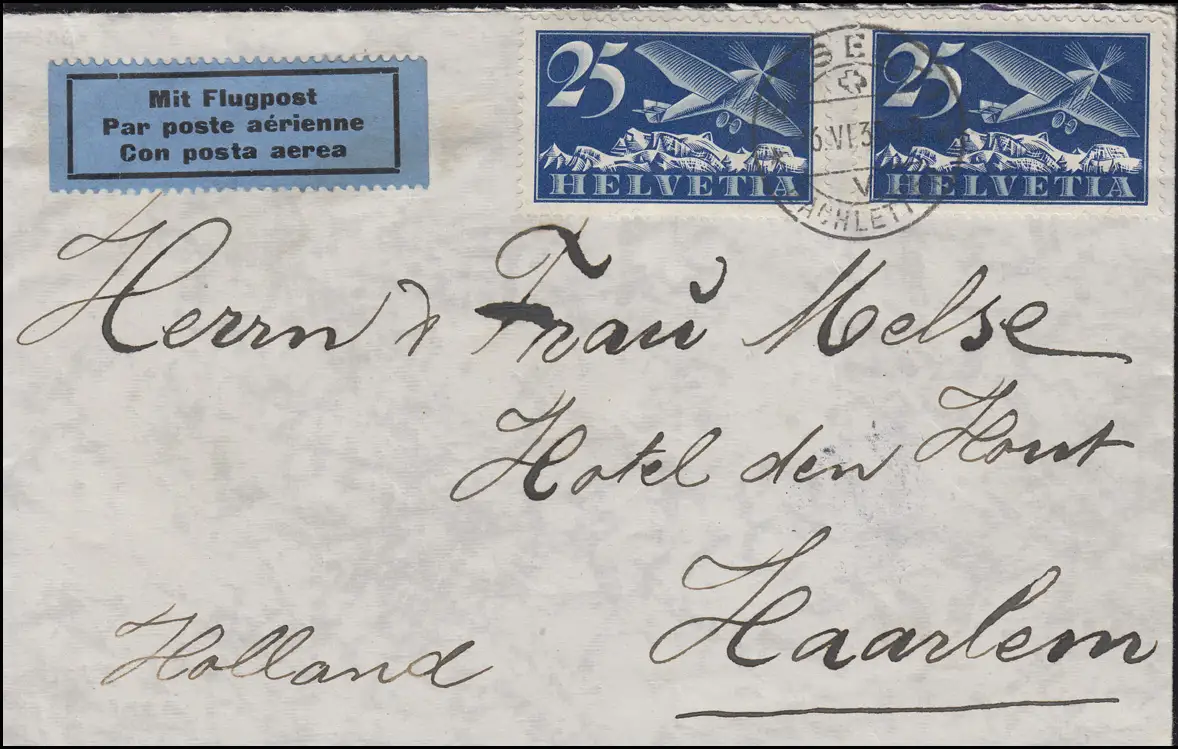 Mit Flugpost
Par poste aérienne
Con posta aerea
25
HELVETIA
25
HELVETIA
6.VI.3
V
Herrn & Frau Melse
Hotel den Hout
Haarlem
Holland